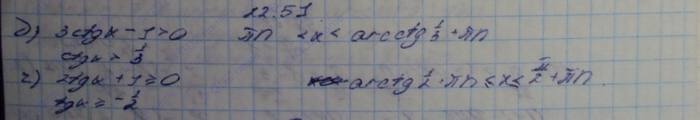 22.51
б) 3ctgx - 1 > 0   πn < x < arcctg 1/3 + πn
ctgx > 1/3
г) 2tgx + 1 ≥ 0   -arctg 1/2 + πn ≤ x ≤ π/2 + πn
tgx ≥ -1/2